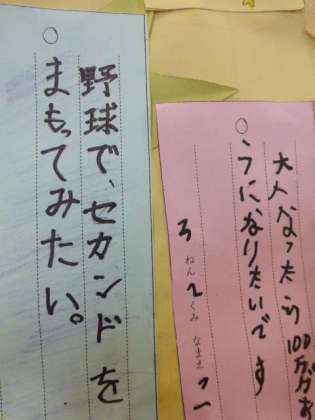 野球で、セカンドを
まもってみたい。
大人なったら100
うになりたいです
3ねん2くみ なまえ